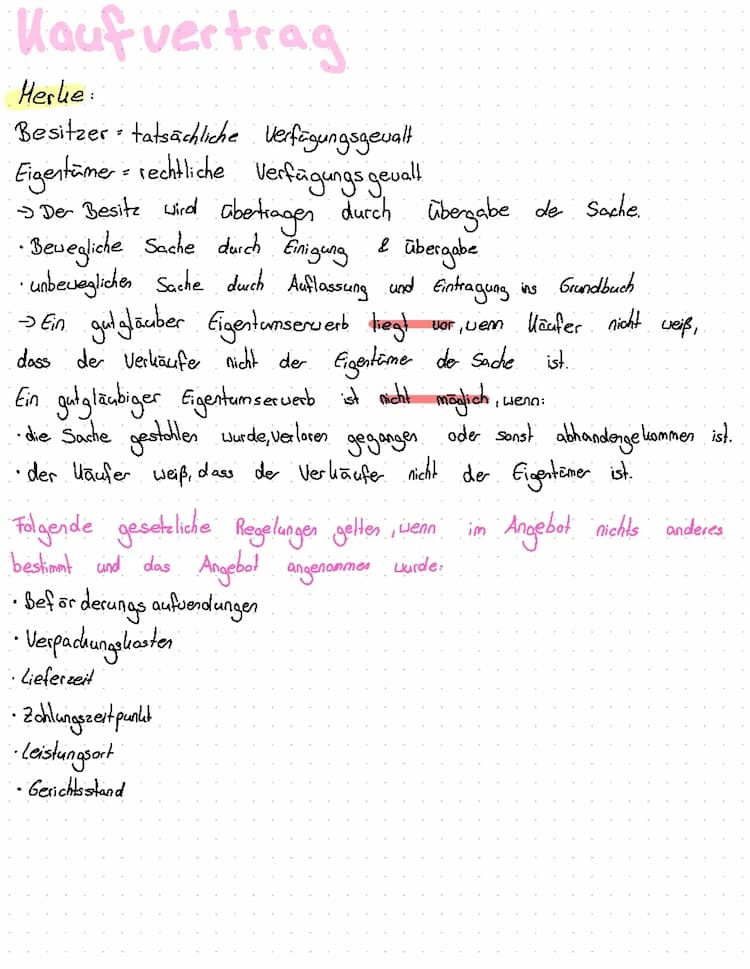 Kaufvertrag
Merke:
Besitzer = tatsächliche Verfügungsgewalt
Eigentümer = rechtliche Verfügungsgewalt
→ Der Besitz wird übertragen durch Übergabe der Sache.
· Bewegliche Sache durch Einigung & Übergabe
· unbeweglichen Sache durch Auflassung und Eintragung ins Grundbuch
→ Ein gutgläuber Eigentumserwerb liegt vor, wenn Käufer nicht weiß,
dass der Verkäufer nicht der Eigentümer der Sache ist.
Ein gutgläubiger Eigentumserwerb ist nicht möglich, wenn:
· die Sache gestohlen wurde, verloren gegangen oder sonst abhandengekommen ist.
· der Käufer weiß, dass der Verkäufer nicht der Eigentümer ist.
Folgende gesetzliche Regelungen gelten, wenn im Angebot nichts anderes
bestimmt und das Angebot angenommen wurde:
· Beförderungsaufwendungen
· Verpackungskosten
· Lieferzeit
· Zahlungszeitpunkt
· Leistungsort
· Gerichtsstand